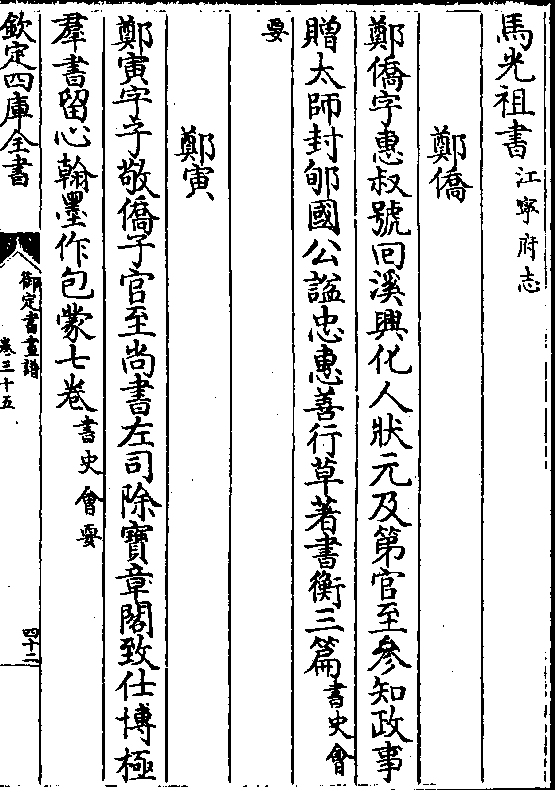 馬光祖書江寧府志
鄭僑
鄭僑字惠叔號回溪興化人狀元及第官至參知政事
贈太師封郇國公諡忠惠善行草著書衡三篇書史會
要
鄭寅
鄭寅字子敬僑子官至尚書左司除寶章閣致仕博極
羣書留心翰墨作包蒙七卷書史會要
欽定四庫全書
御定書畫譜
卷三十五
四十二